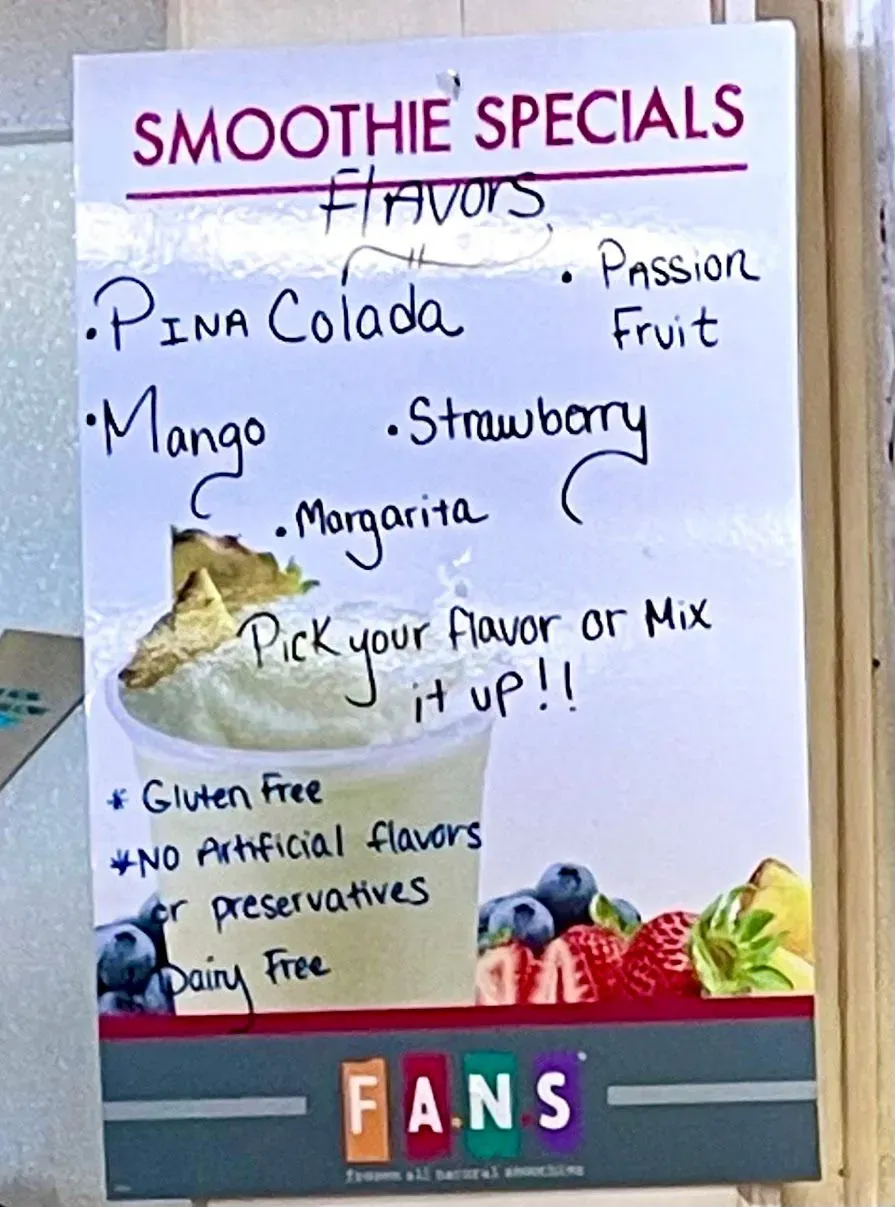 SMOOTHIE SPECIALS
Flavors
• Pina Colada
• Passion
Fruit
• Mango
• Strawberry
• Margarita
Pick your flavor or Mix
it up!!
* Gluten Free
* No Artificial flavors
or preservatives
Dairy Free
F.A.N.S
frozen all natural smoothies